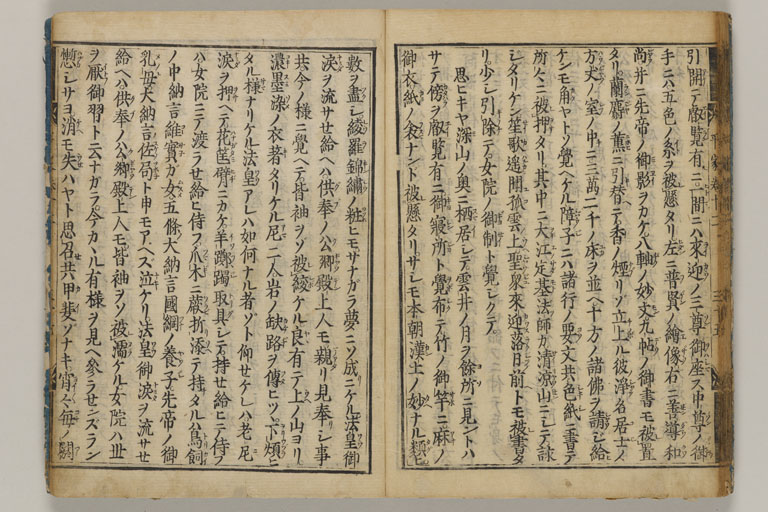 引開テ叡覧有ニ一間ニハ來迎ノ三尊御座ス中尊ノ御
手ニハ五色ノ糸ヲ被懸タリ左ニ普賢ノ繪像右ニ善導和
尚并ニ先帝ノ御影ヲカケ八軸ノ妙文九帖ノ御書モ被置
タリ蘭麝ノ薫ニ引替テ香ノ煙リソ立上ル彼淨名居士ノ
方丈ノ室ノ中ニ三萬二千ノ床ヲ並ヘ十方ノ諸佛ヲ請シ給
ケンモ角ヤトソ覺ヘケル障子ニハ諸行ノ要文共色紙ニ書テ
所々ニ被押タリ其中ニ大江定基法師カ清凉山ニシテ詠
シタリケン笙歌遥聞孤雲上聖衆來迎落日前トモ被書タ
リ少シ引除テ女院ノ御制ト覺シクテ
思ヒキヤ深山ノ奥ニ栖居シテ雲井ノ月ヲ余所ニ見ントハ
サテ傍ヲ叡覧有ニ御寢所ト覺布テ竹ノ御竿ニ麻ノ
御衣紙ノ衾ナント被懸タリサレモ本朝漢土ノ妙ナル類ヒ
數ヲ盡シ綾羅錦繡ノ粧ヒモサナガラ夢ニソ成ニケル法皇御
淚ヲ流サセ給ヘハ供奉ノ公卿殿上人モ親リ見奉シ事
共今ノ様ニ覺ヘテ皆袖ヲソ被絞ケル良有テ上ノ山ヨリ
濃墨染ノ衣著タリケル尼二人岩ノ缺路ヲ傳ヒツヽ下煩ヒ
タル様ナリケル法皇アレハ如何ナル者ソト仰セケレハ老尼
淚ヲ押ヘテ花筐臂ニカケ羊躑躅取具シテ持セ給ヒテ侍フ
ハ女院ニテ渡ラセ給ヒ侍フ爪木ニ蕨折添テ持タルハ鳥飼
ノ中納言維實カ女五條大納言國綱ノ養子先帝ノ御
乳母大納言佐局ト申モアヘス泣ケリ法皇御淚ヲ流サセ
給ヘハ供奉ノ公卿殿上人モ皆袖ヲソ被濡ケル女院ハ世
ヲ厭御習ト云ナガラ今カヽル有様ヲ見ヘ參ラセンズラン
慙シサヨ消モ失ハヤト思召共ハ甲斐ソナキ宵々毎ノ閼